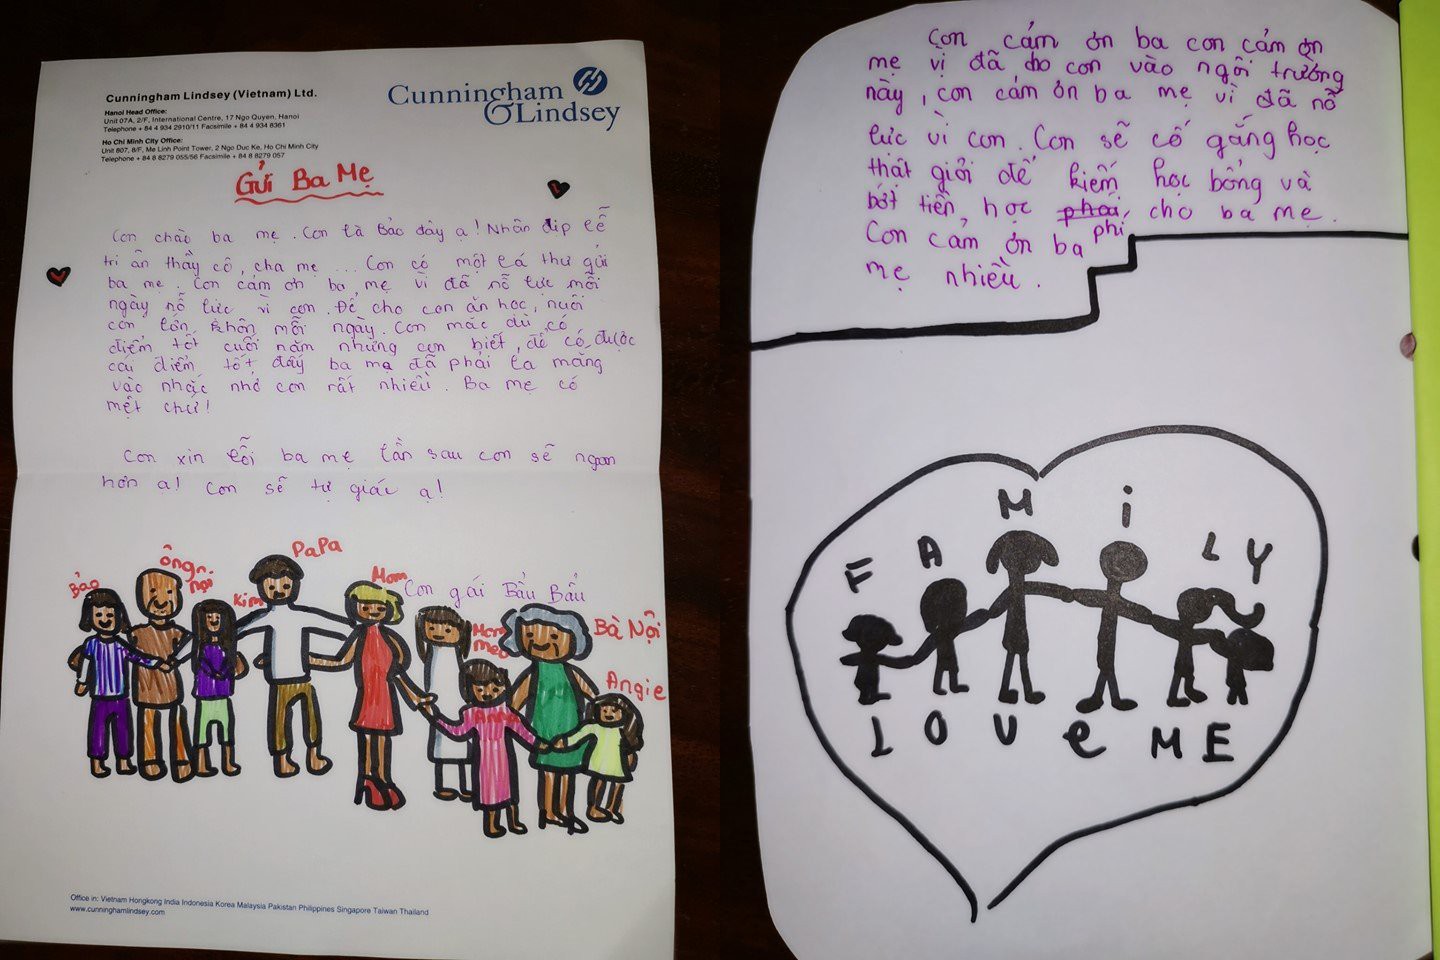 Cunningham Lindsey (Vietnam) Ltd.
Hanoi Head Office:
Unit 07A, 2/F, International Centre, 17 Ngo Quyen, Hanoi
Telephone + 84 4 934 2910/11 Facsimile + 84 4 934 8361
Ho Chi Minh City Office:
Unit 807, 8/F, Me Linh Point Tower, 2 Ngo Duc Ke, Ho Chi Minh City
Telephone + 84 8 8279 055/56 Facsimile + 84 8 8279 057
Cunningham
& Lindsey
Gửi Ba Mẹ
Con chào ba mẹ. Con là Bảo đây ạ! Nhân dịp lễ
tri ân thầy cô, cha mẹ ... Con có một lá thư gửi
ba mẹ. Con cảm ơn ba mẹ vì đã nỗ lực mỗi
ngày nỗ lực vì con. Để cho con ăn học, nuôi
con lớn khôn mỗi ngày. Con mặc dù có
điểm tốt cuối năm nhưng con biết, để có được
cái điểm tốt đấy ba mẹ đã phải la mắng
vào nhắc nhở con rất nhiều. Ba mẹ có
mệt chứ!
Con xin lỗi ba mẹ lần sau con sẽ ngoan
hơn ạ! Con sẽ tự giác ạ!
Con gái Bẩu Bẩu
Bảo
ông nội
Kim
PaPa
Mom
Mom mèo
Anna
Bà Nội
Angie
Office in: Vietnam Hongkong India Indonesia Korea Malaysia Pakistan Philippines Singapore Taiwan Thailand
www.cunninghamlindsey.com
Con cảm ơn ba con cảm ơn
mẹ vị đã cho con vào ngôi trường
này, con cảm ơn ba mẹ vì đã nỗ
lực vì con. Con sẽ cố gắng học
thật giỏi để kiếm học bổng và
bớt tiền học phí cho ba mẹ.
Con cảm ơn ba
mẹ nhiều.
FAMiLY
LOVe ME